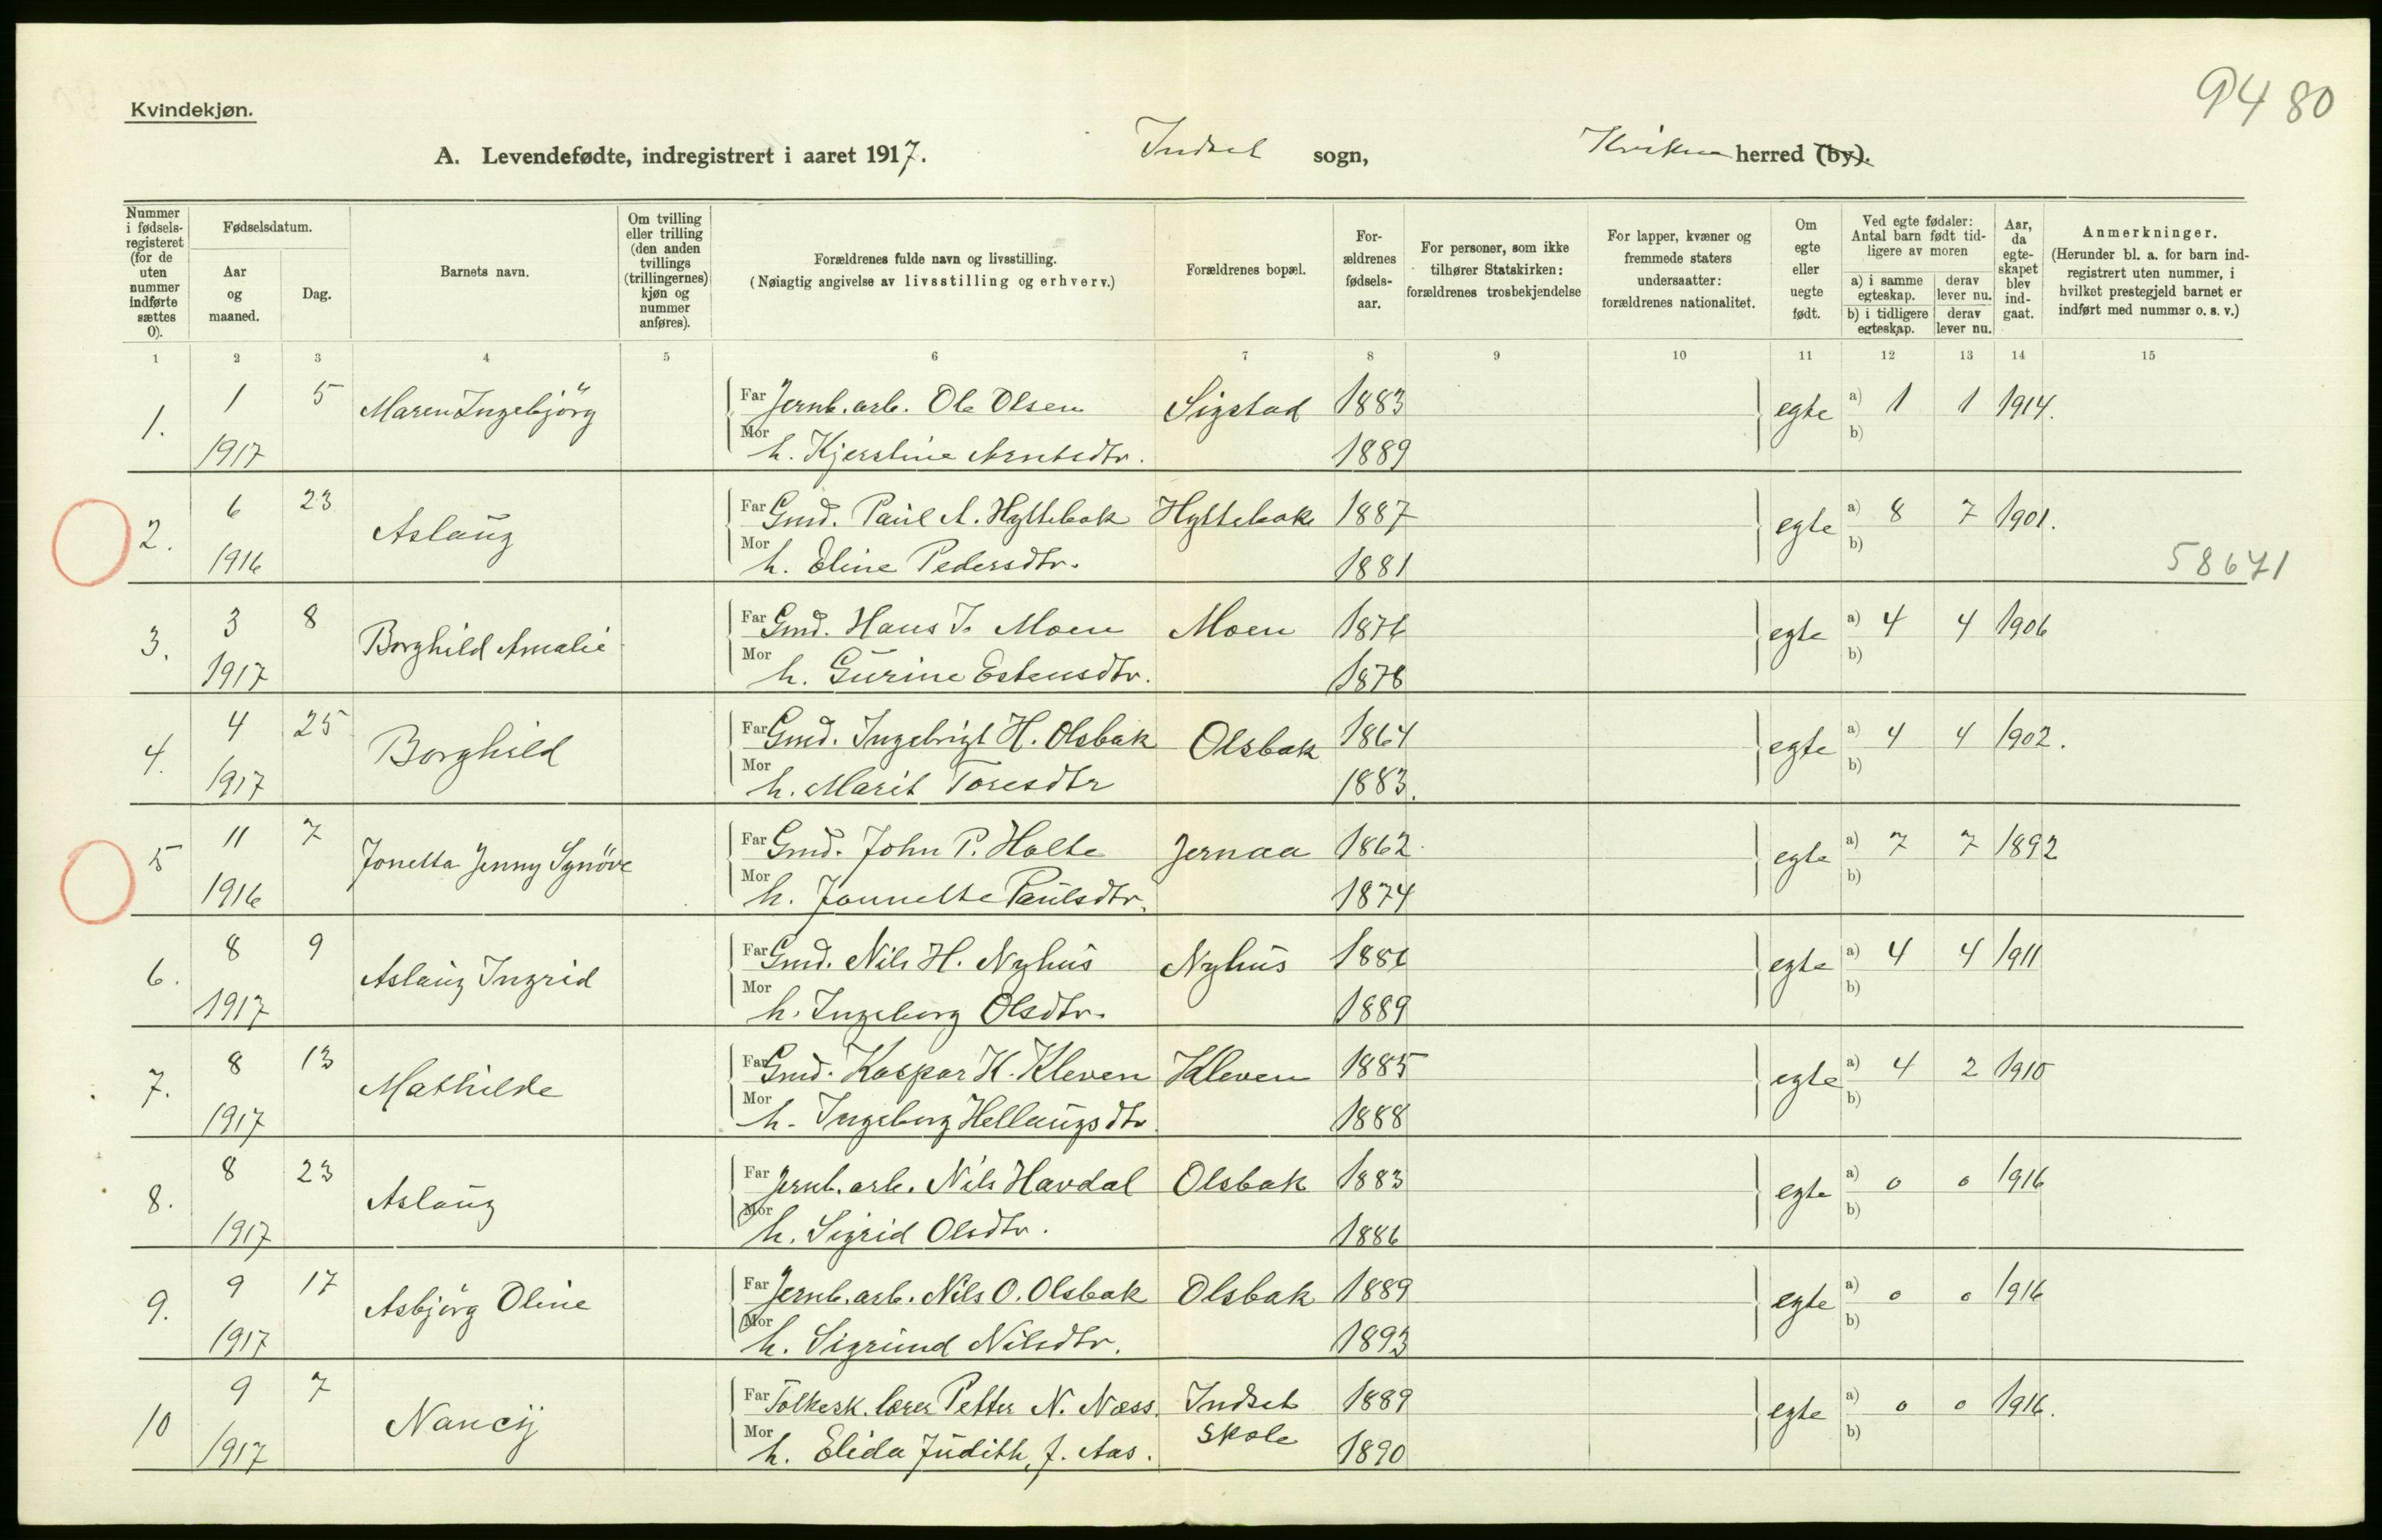 9480
Kvindekjøn.
A. Levendefødte, indregistrert i aaret 1917. Indset sogn, Kvikne herred (by).
Nummer i fødsels-registeret (for de uten nummer indførte sættes 0).
Fødselsdatum.
Aar og maaned.
Dag.
Barnets navn.
Om tvilling eller trilling (den anden tvillings (trillingernes) kjøn og nummer anføres).
Forældrenes fulde navn og livsstilling.
(Nøiagtig angivelse av livsstilling og erhverv.)
Forældrenes bopæl.
For-ældrenes fødsels-aar.
For personer, som ikke tilhører Statskirken: forældrenes trosbekjendelse
For lapper, kvæner og fremmede staters undersaatter: forældrenes nationalitet.
Om egte eller uegte født.
Ved egte fødsler: Antal barn født tid-ligere av moren
a) i samme egteskap.
derav lever nu.
b) i tidligere egteskap.
derav lever nu.
Aar, da egte-skapet blev ind-gaat.
Anmerkninger.
(Herunder bl. a. for barn ind-registrert uten nummer, i hvilket prestegjeld barnet er indført med nummer o. s. v.)
1 2 3 4 5 6 7 8 9 10 11 12 13 14 15
1. 1 1917 5 Maren Ingebjörg Far Jernb. arb. Ole Olsen Sigstad 1883 egte a) 1 1 1914.
Mor h. Kjerstine Arntsdtr. 1889 b)
2. 6 1916 23 Aslaug Far Gmd. Paul A. Hyttebak Hyttebak 1887 egte a) 8 7 1901.
Mor h. Eline Pedersdtr. 1881 b)
58671
3. 3 1917 8 Borghild Amalie Far Gmd. Hans J. Moen Moen 1876 egte a) 4 4 1906
Mor h. Gurine Estensdtr. 1878 b)
4. 4 1917 25 Borghild Far Gmd. Ingebrigt H. Olsbak Olsbak 1864 egte a) 4 4 1902.
Mor h. Marit Toresdtr 1883. b)
5 11 1916 7 Jonetta Jenny Synöve Far Gmd. John P. Holte Jernaa 1862 egte a) 7 7 1892
Mor h. Jonnette Paulsdtr. 1874 b)
6. 8 1917 9 Aslaug Ingrid Far Gmd. Nils H. Nyhus Nyhus 1886 egte a) 4 4 1911
Mor h. Ingeborg Olsdtr. 1889 b)
7. 8 1917 13 Mathilde Far Gmd. Kaspar K. Kleven Kleven 1885 egte a) 4 2 1910
Mor h. Ingeborg Hellaugsdtr 1888 b)
8. 8 1917 23 Aslaug Far Jernb. arb. Nils Havdal Olsbak 1883 egte a) 0 0 1916
Mor h. Sigrid Olsdtr. 1886 b)
9. 9 1917 17 Asbjörg Oline Far Jernb. arb. Nils O. Olsbak Olsbak 1889 egte a) 0 0 1916
Mor h. Sigrund Nilsdtr. 1893 b)
10 9 1917 7 Nancy Far Folkesk. lærer Petter N. Næss. Indset skole 1889 egte a) 0 0 1916.
Mor h. Elida Judith, f. Aas. 1890 b)